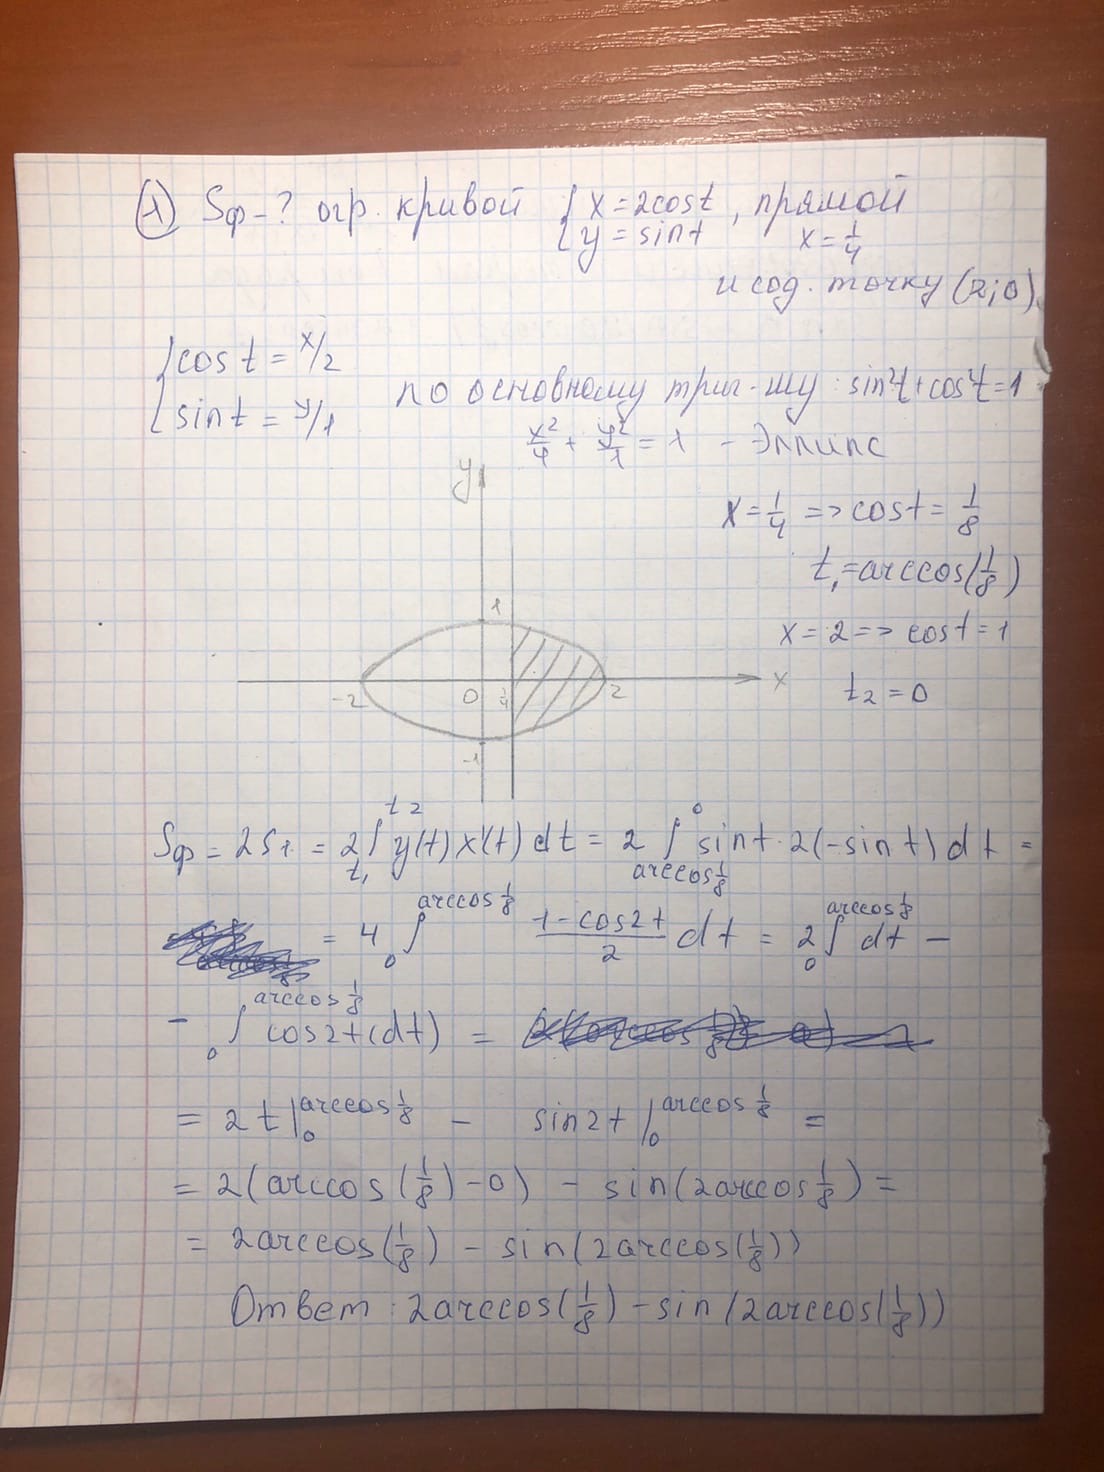 1) Sф-? огр. кривой { x = 2cost, y = sint , прямой x = 1/4
и сод. точку (2;0).
{ cos t = x/2
sin t = y/1
по основному триг-му: sin²t + cos²t = 1
x²/4 + y²/1 = 1 - Эллипс
x = 1/4 => cost = 1/8
t₁ = arccos(1/8)
x = 2 => cost = 1
t₂ = 0
y
1
-2 0 1/4 2 x
-1
Sф = 2S₁ = 2∫_{t₁}^{t₂} y(t) x'(t) dt = 2 ∫_{arccos 1/8}^{0} sint · 2(-sin t) dt =
= 4 ∫_{0}^{arccos 1/8} (1-cos2t)/2 dt = 2∫_{0}^{arccos 1/8} dt -
- ∫_{0}^{arccos 1/8} cos2t(dt) =
= 2t |_{0}^{arccos 1/8} - sin2t |_{0}^{arccos 1/8} =
= 2(arccos(1/8) - 0) - sin(2arccos 1/8) =
= 2arccos(1/8) - sin(2arccos(1/8))
Ответ: 2arccos(1/8) - sin(2arccos(1/8))